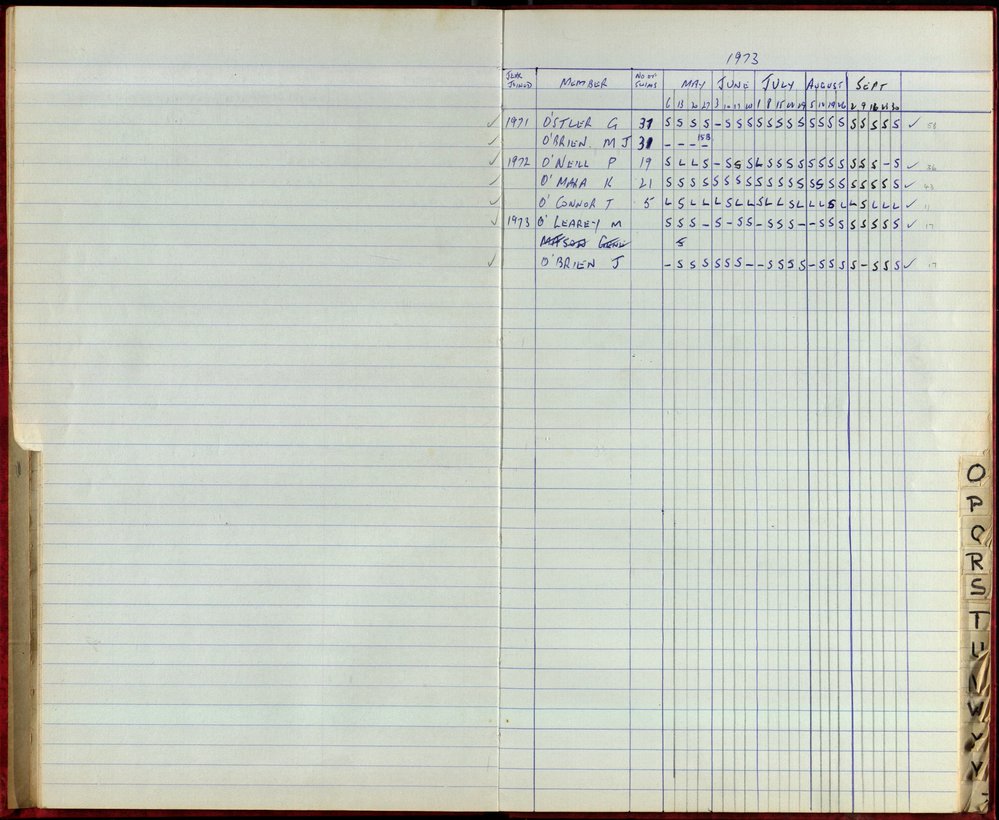 1973
YEAR JOINED MEMBER NO OF SWIMS MAY JUNE JULY AUGUST SEPT
6 13 20 27 3 10 17 1 8 15 22 29 5 12 19 26 2 9 16 23 30
✓ 1971 O'STLER G 37 S S S S - S S S S S S S S S S S S S S S S S ✓
✓ O'BRIEN M J 31 - - - -
✓ 1972 O'NEILL P 19 S L L S - S S S L S S S S S S S S S S S - S ✓ 36
✓ O'MARA K 21 S S S S S S S S S S S S S S S S S S S S S S ✓ 43
✓ O'CONNOR T 5 L S L L L S L L S L L S L L L S L L S L L L ✓ 11
✓ 1973 O'LEAREY M S S S - S - S S - S S S - - S S S S S S S S ✓ 17
S
✓ O'BRIEN J - S S S S S S - - S S S S - S S S S - S S S ✓ 17
O
P
Q
R
S
T
U
W
Y